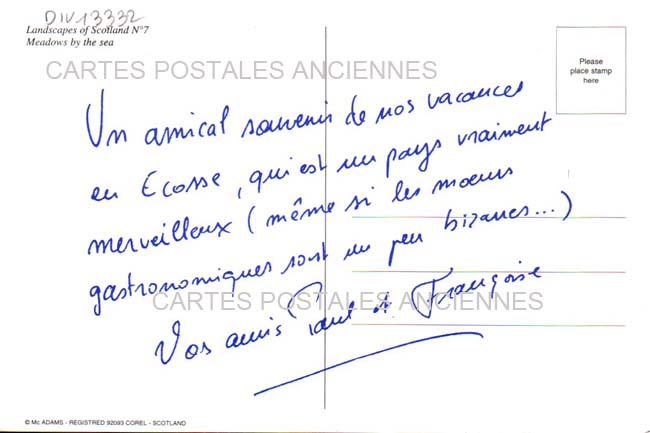 DIV13332
Landscapes of Scotland N°7
Meadows by the sea
Please
place stamp
here
CARTES POSTALES ANCIENNES
Un amical souvenir de nos vacances
en Ecosse, qui est un pays vraiment
merveilleux (même si les moeurs
gastronomiques sont un peu bizarres...)
CARTES POSTALES ANCIENNES
Vos amis Paul et Françoise
© Mc ADAMS - REGISTRED 92093 COREL - SCOTLAND